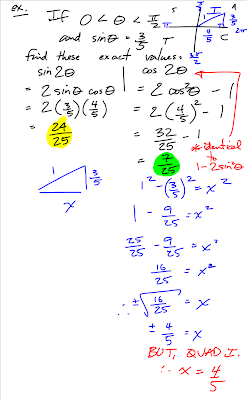 ex. If 0 < θ < π/2
and sinθ = 3/5
find these exact values:
sin 2θ
= 2 sinθ cosθ
= 2 (3/5)(4/5)
= 24/25
cos 2θ
= 2 cos²θ - 1
= 2 (4/5)² - 1
= 32/25 - 1
= 7/25
* identical
to
1 - 2 sin²θ
S
π/2
A
I
1
3/5
4/5
T
C
2π
3π/2
1
3/5
x
1² - (3/5)² = x²
1 - 9/25 = x²
25/25 - 9/25 = x²
16/25 = x²
∴ ±√16/25 = x
± 4/5 = x
BUT, QUAD I.
∴ x = 4/5